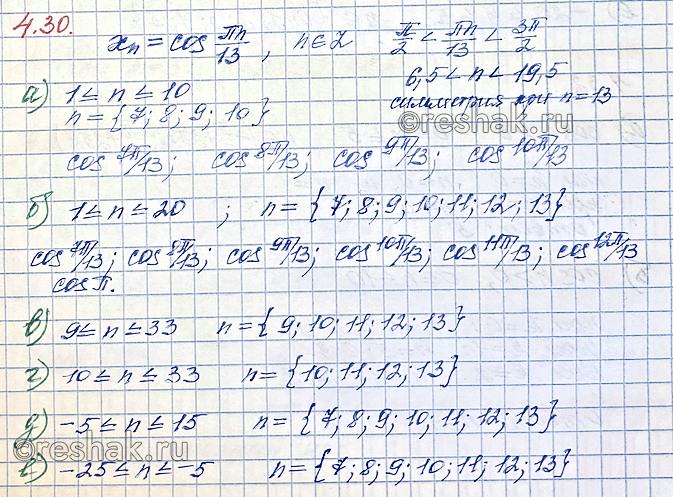 4.30.
xₙ = cos πn/13, n∈Z π/2 < πn/13 < 3π/2
6,5 < n < 19,5
а) 1 ≤ n ≤ 10 симметрия при n = 13
n = {7; 8; 9; 10}
©reshak.ru
cos 7π/13; cos 8π/13; cos 9π/13; cos 10π/13
б) 1 ≤ n ≤ 20 ; n = {7; 8; 9; 10; 11; 12; 13}
cos 7π/13; cos 8π/13; cos 9π/13; cos 10π/13; cos 11π/13; cos 12π/13
cos π.
в) 9 ≤ n ≤ 33 n = {9; 10; 11; 12; 13}
г) 10 ≤ n ≤ 33 n = {10; 11; 12; 13}
д) -5 ≤ n ≤ 15 n = {7; 8; 9; 10; 11; 12; 13}
©reshak.ru
е) -25 ≤ n ≤ -5 n = {7; 8; 9; 10; 11; 12; 13}